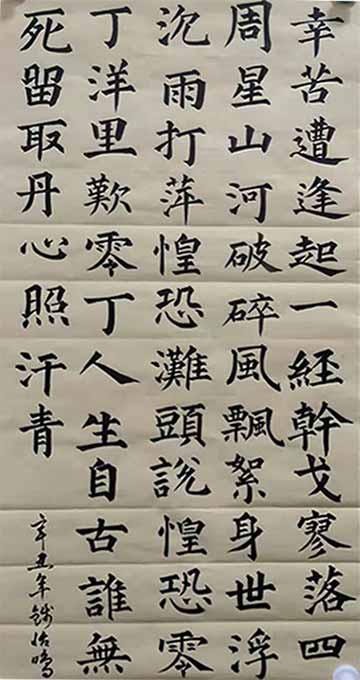 幸苦遭逢起一經幹戈寥落四
周星山河破碎風飄絮身世浮
沉雨打萍惶恐灘頭説惶恐零
丁洋里歎零丁人生自古誰無
死留取丹心照汗青
辛丑年錢怡鳴